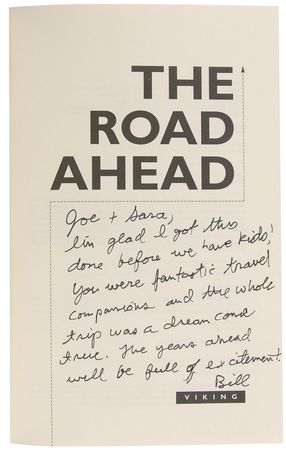 THE
ROAD
AHEAD
Joe + Sara,
I'm glad I got this
done before we have kids!
You were fantastic travel
companions and the whole
trip was a dream come
true. The years ahead
will be full of excitement.
Bill
VIKING